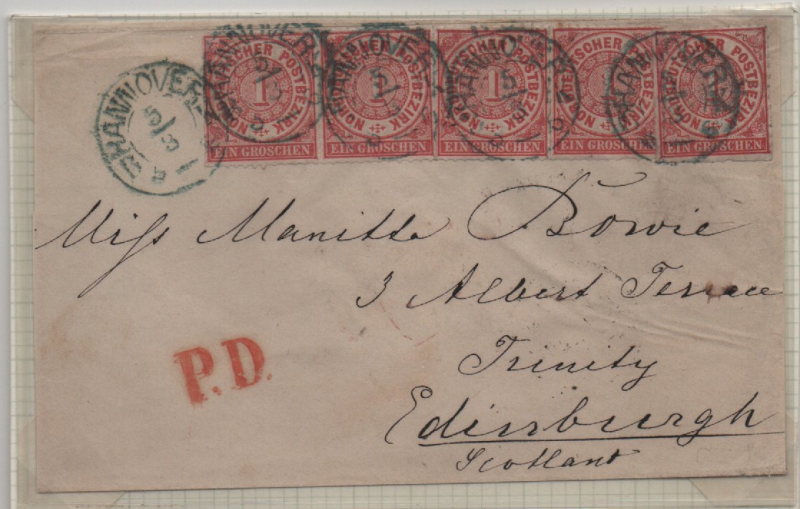 HANNOVER
5/3
HANNOVER
5/3
HANNOVER
5/3
HANNOVER
5/3
HANNOVER
NORDDEUTSCHER POSTBEZIRK
1
EIN GROSCHEN
NORDDEUTSCHER POSTBEZIRK
1
EIN GROSCHEN
NORDDEUTSCHER POSTBEZIRK
1
EIN GROSCHEN
NORDDEUTSCHER POSTBEZIRK
1
EIN GROSCHEN
NORDDEUTSCHER POSTBEZIRK
EIN GROSCHEN
Miss Manitta Bowie
3 Albert Terrace
Trinity
P.D.
Edinburgh
Scotland